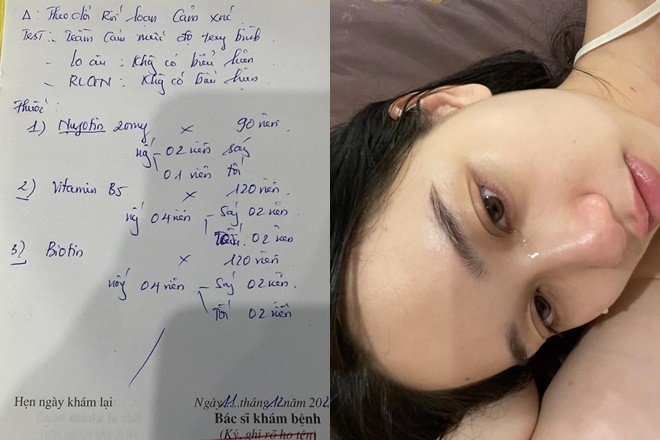 Δ: Theo dõi Rối loạn Cảm xúc
Test: Trầm Cảm mức độ trung bình
- Lo âu : Khg có biểu hiện
- RLGN : Khg có biểu hiện
Thuốc :
1) Nuyotin 20mg x 90 viên.
02 viên sáng
01 viên tối
2) Vitamin B5 x 120 viên
uống 04 viên - Sáng 02 viên
Tối 02 viên
3) Biotin x 120 viên
uống 04 viên - Sáng 02 viên.
Tối 02 viên
Hẹn ngày khám lại
Ngày 11 tháng 12 năm 202
Bác sĩ khám bệnh
(Ký, ghi rõ họ tên)